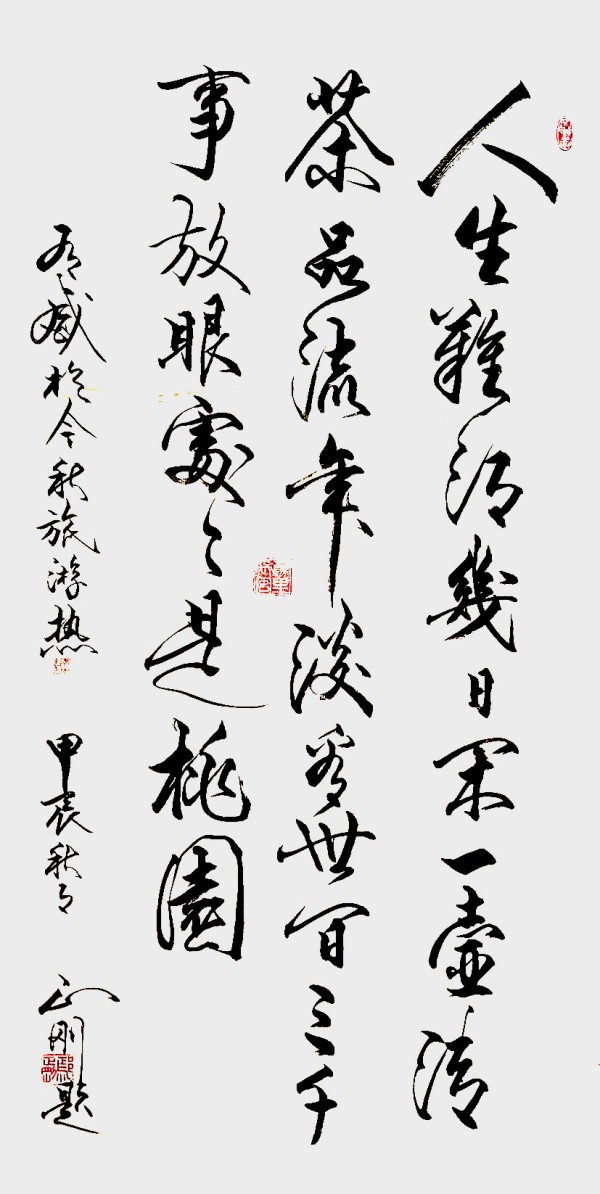 人生難得幾日闲一壺清
茶品流年淡看世间三千
事放眼處々是桃園
有感於今秋旅游热
甲辰秋月
正刚题